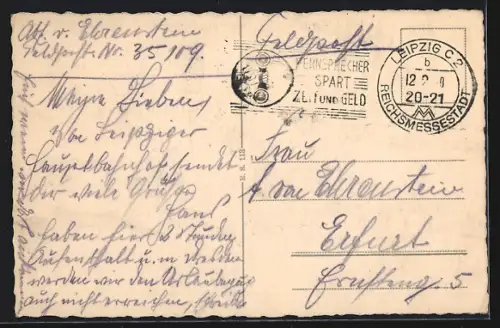 Abs. v. Ehrenstein
Feldpost Nr. 35109.
Meine Lieben,
Vom Leipziger
Hauptbahnhof sendet
Dir viele Grüsse
Hans
haben hier 3 Stunden
Aufenthalt u. in
werden wir den Urlauberzug
auch nicht erreichen,
Feldpost
FERNSPRECHER
SPART
ZEIT UND GELD
LEIPZIG C 2
b
12.2.
20-21
REICHSMESSESTADT
Frau
A. von Ehrenstein
Erfurt
5